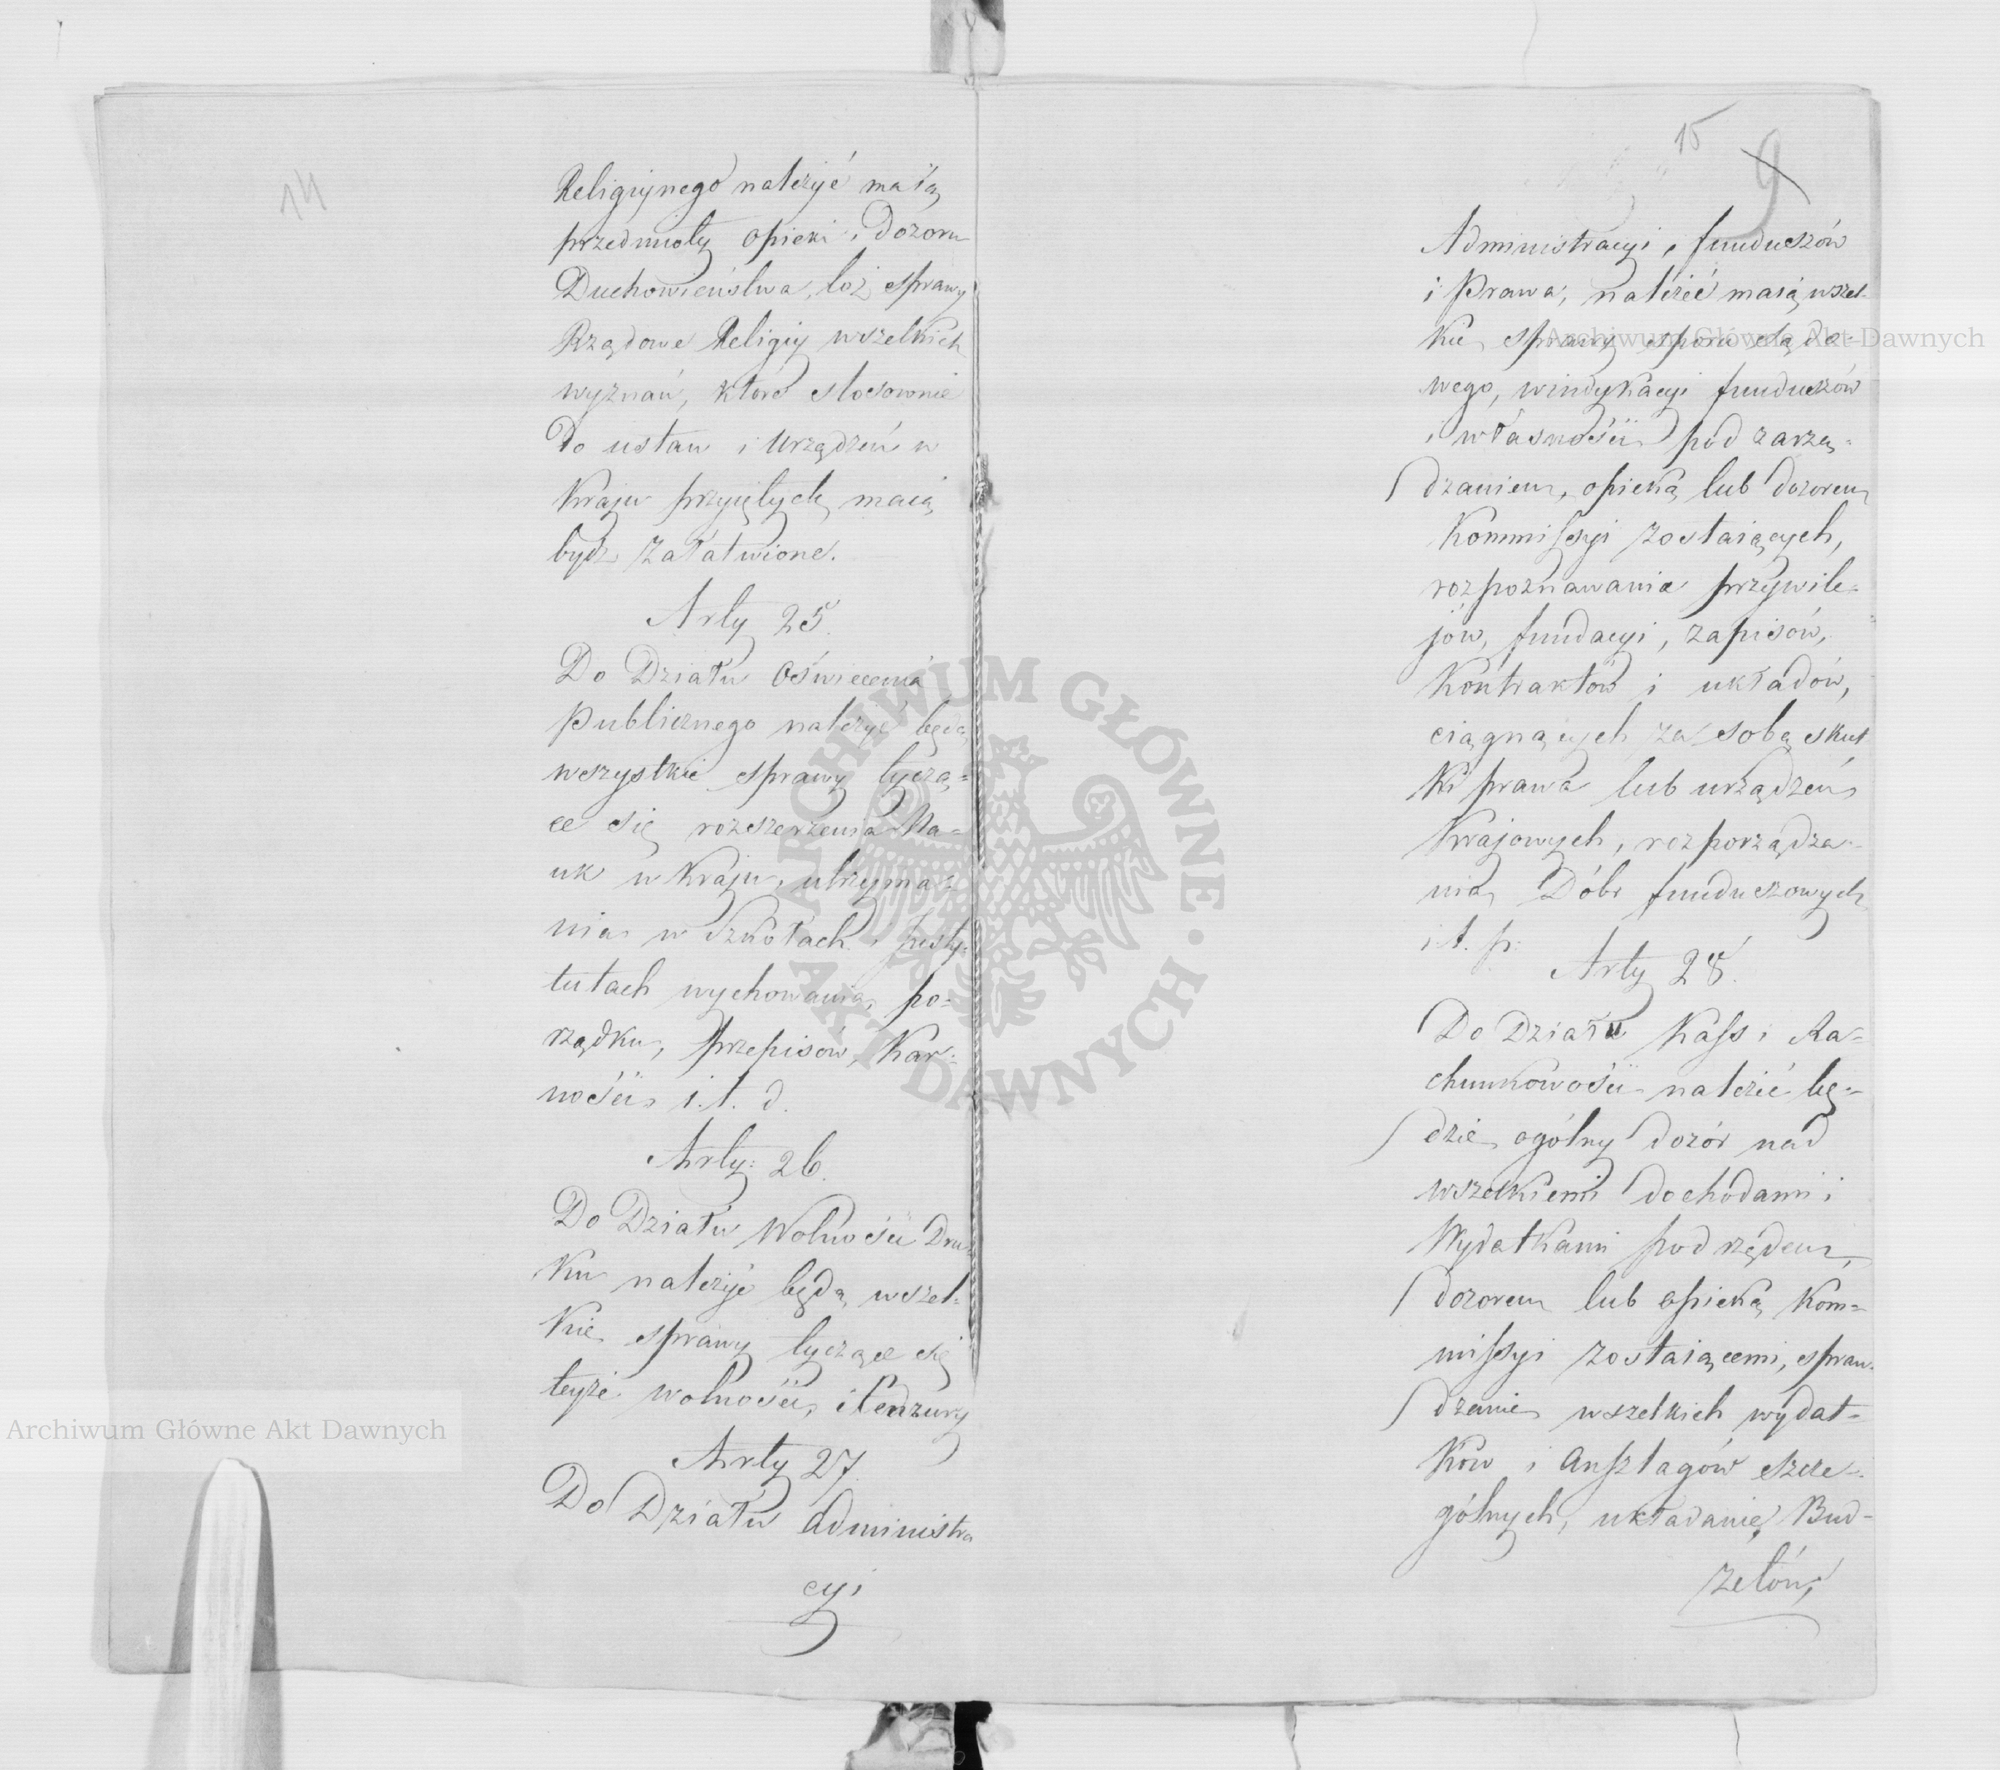 14
Religijnego należyć maią
przedmioty opieki i Dozoru
Duchowieństwa, toż sprawy
Rządowe Religiy wszelkich
wyznań, które stosownie
Do ustaw i Urządzeń w
Kraju przyiętych maią
bydź załatwione.
Arty 25.
Do Działu Oświecenia
Publicznego należyć będą
wszystkie sprawy tyczą=
ce się rozszerzenia Na=
uk w Kraju, utrzyma=
nia w Szkołach i Insty=
tutach wychowania, po=
rządku, przepisów, Kar=
ności i. t. d.
Arty: 26.
Do Działu Wolności Dru=
ku należyć będą wszel=
kie sprawy tyczące się
teyże wolności, i Cenzury
Arty 27.
Do Działu Administra
cyi
15
9
Administracyi, funduszów
i Prawa, należeć maią wszel=
kie sprawy sporu sądo=
wego, windykacyi funduszów
i własności pod zarzą=
dzaniem, opieką lub dozorem
Kommissyi zostaiących,
rozpoznawania przywile=
jów, fundacyi, zapisów,
Kontraktów i układów,
ciągnących za sobą skut
ki prawa lub urządzeń
Krajowych, rozporządza=
nia Dóbr funduszowych
i t. p:
Arty 28.
Do Działu Kass i Ra=
chunkowości należeć bę=
dzie ogólny dozór nad
wszelkiemi dochodami i
Wydatkami pod rządem,
dozorem lub opieką Kom=
missyi zostaiącemi, spraw=
dzenie wszelkich wydat=
ków i Anszlagów szcze=
gólnych, układanie Bud=
żetów,
Archiwum Główne Akt Dawnych
Archiwum Główne Akt Dawnych
ARCHIWUM GŁÓWNE · AKT DAWNYCH ·